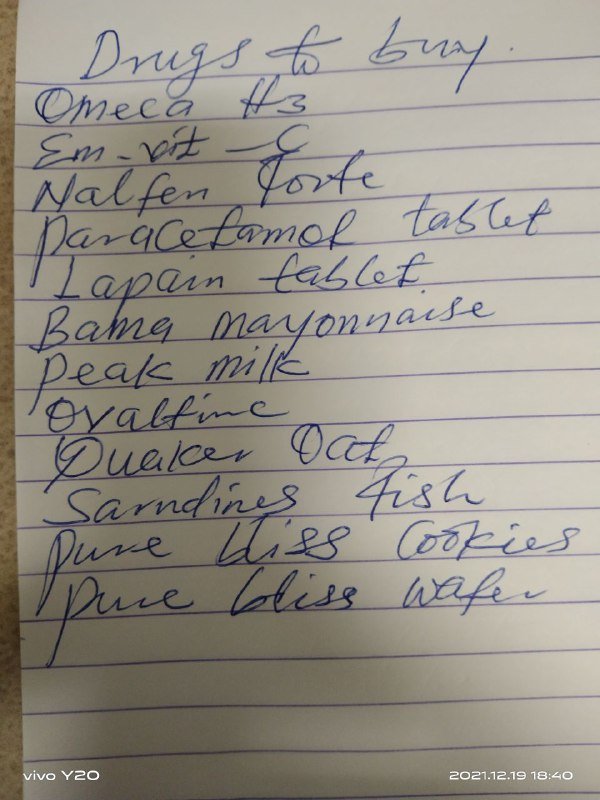 Drugs to buy.
Omeca H3
Em-vit-C
Nalfen Forte
Paracetamol tablet
Lapain tablet
Bama mayonnaise
Peak milk
Ovaltine
Quaker Oat
Sarndines fish
pure bliss cookies
pure bliss wafer
vivo Y20
2021.12.19 18:40